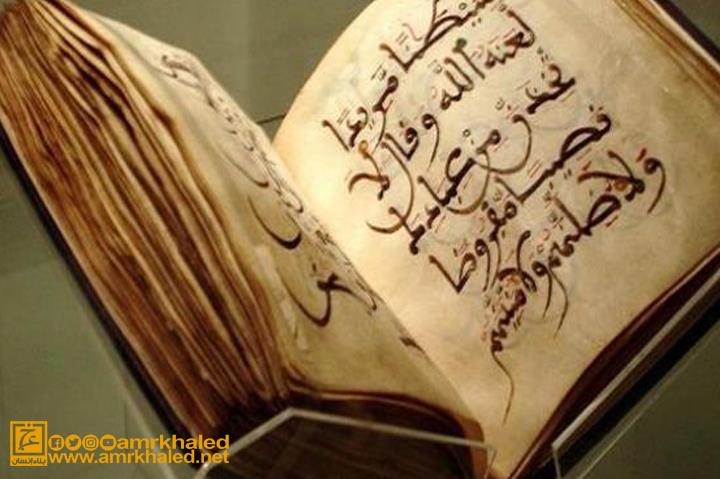 شيطنا مريدا
لعنه الله وقال لا
تخذن من عبادك
نصيبا مفروضا
ولاضلنهم ولامنينهم
بناء إنسان
amrkhaled
www.amrkhaled.net